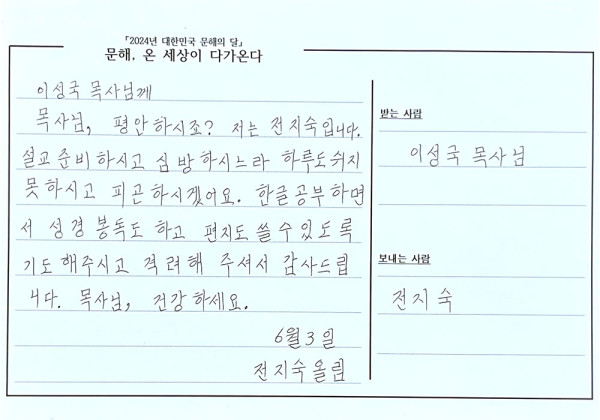 「2024년 대한민국 문해의 달」
문해, 온 세상이 다가온다
이성국 목사님께
목사님, 평안하시죠? 저는 전지숙입니다.
설교준비하시고 심방하시느라 하루도쉬지
못하시고 피곤하시겠어요. 한글공부하면
서 성경봉독도 하고 편지도 쓸수있도록
기도해주시고 격려해 주셔서 감사드립
니다. 목사님, 건강하세요.
6월3일
전지숙올림
받는 사람
이성국 목사님
보내는 사람
전지숙